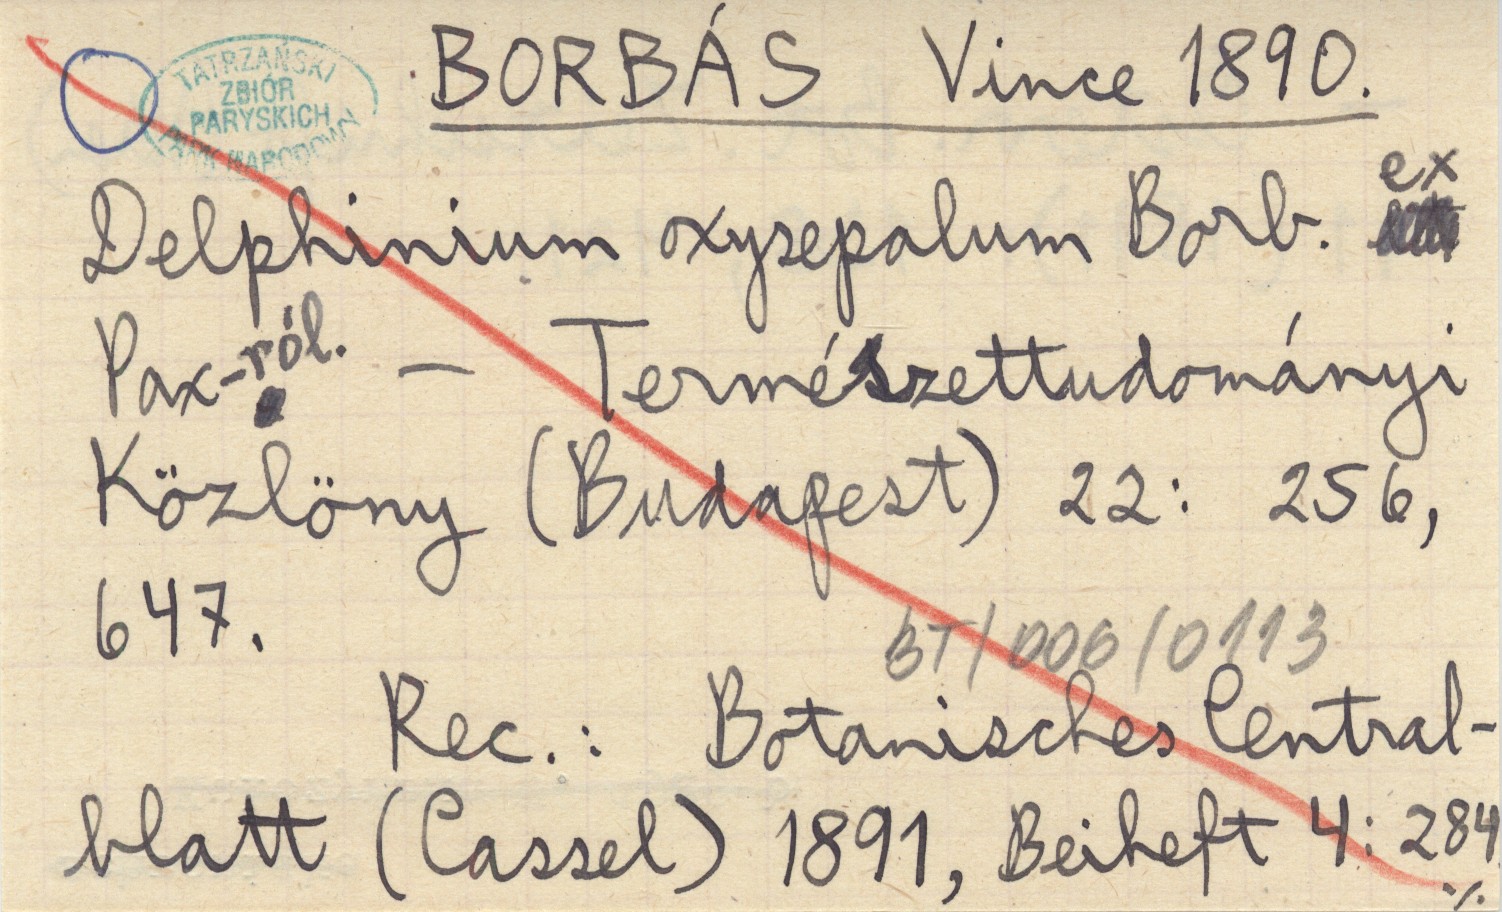 TATRZAŃSKI
ZBIÓR
PARYSKICH
BORBÁS Vince 1890.
Delphinium oxysepalum Borb. ex
Pax-ról. — Természettudományi
Közlöny (Budapest) 22: 256,
647.
BT/006/0113
Rec.: Botanisches Central-
blatt (Cassel) 1891, Beiheft 4: 284
./.